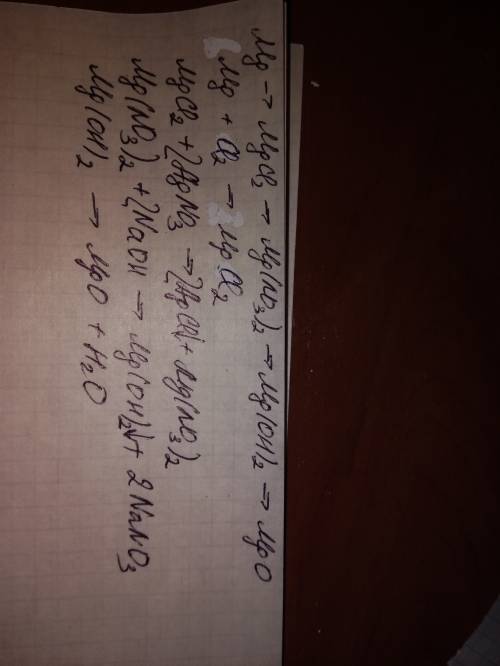 Mg → MgCl₂ → Mg(NO₃)₂ → Mg(OH)₂ → MgO
Mg + Cl₂ → MgCl₂
MgCl₂ + 2AgNO₃ → 2AgCl↓ + Mg(NO₃)₂
Mg(NO₃)₂ + 2NaOH → Mg(OH)₂↓ + 2NaNO₃
Mg(OH)₂ → MgO + H₂O